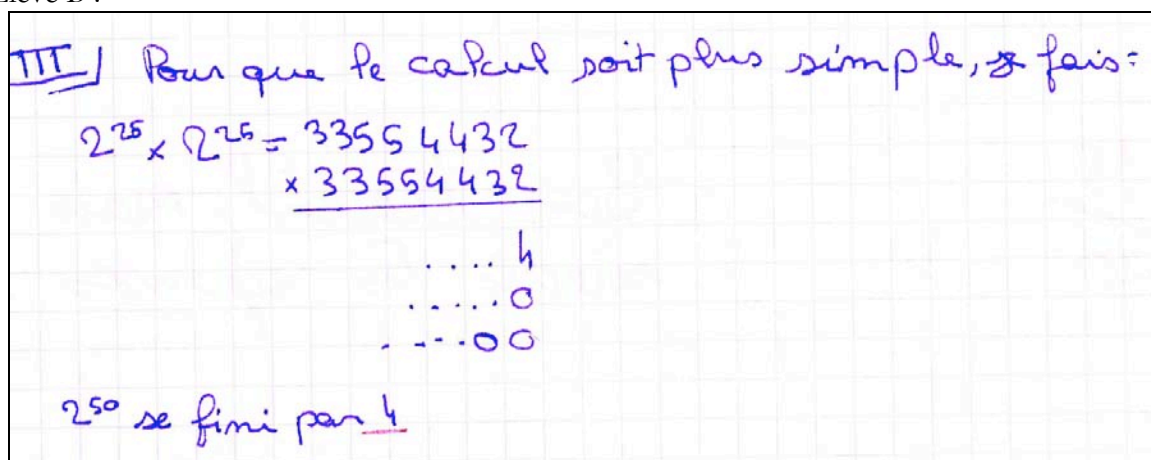 III) Pour que le calcul soit plus simple, je fais:
2²⁵ x 2²⁵ = 33554432
x 33554432
.... 4
..... 0
.....00
2⁵⁰ se fini par 4